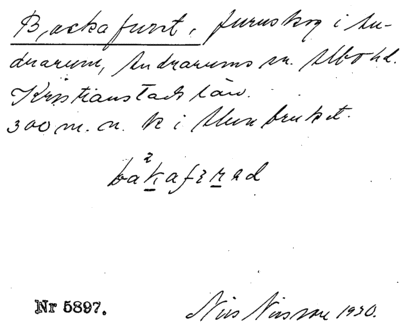 Backafuret, furuskog i An-
drarum, Andrarums sn. Albo hd.
Kristianstads län.
300 m. n. k i Alunbruket.
Nr 5897.
Nils Nilsson 1930.